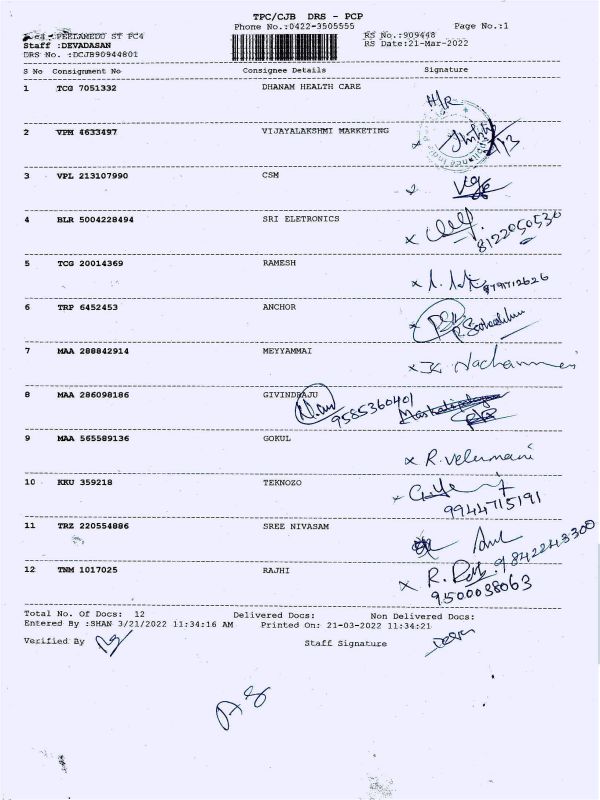 TPC/CJB DRS - PCP
Phone No.:0422-3505555 Page No.:1
PEELAMEDU ST PC4 RS No.:909448
Staff :DEVADASAN RS Date:21-Mar-2022
DRS No. :DCJB90944801
S No Consignment No Consignee Details Signature
1 TCG 7051332 DHANAM HEALTH CARE
H/R
2 VPM 4633497 VIJAYALAKSHMI MARKETING
3 VPL 213107990 CSM
4 BLR 5004228494 SRI ELETRONICS
8122050530
5 TCG 20014369 RAMESH
6 TRP 6452453 ANCHOR
7 MAA 288842914 MEYYAMMAI
8 MAA 286098186 GIVINDRAJU
9585360401
9 MAA 565589136 GOKUL
x R. Velumani
10 KKU 359218 TEKNOZO
9944715191
11 TRZ 220554886 SREE NIVASAM
9842243300
12 TNM 1017025 RAJHI
9500038063
Total No. Of Docs: 12 Delivered Docs: Non Delivered Docs:
Entered By :SHAN 3/21/2022 11:34:16 AM Printed On: 21-03-2022 11:34:21
Verified By Staff Signature